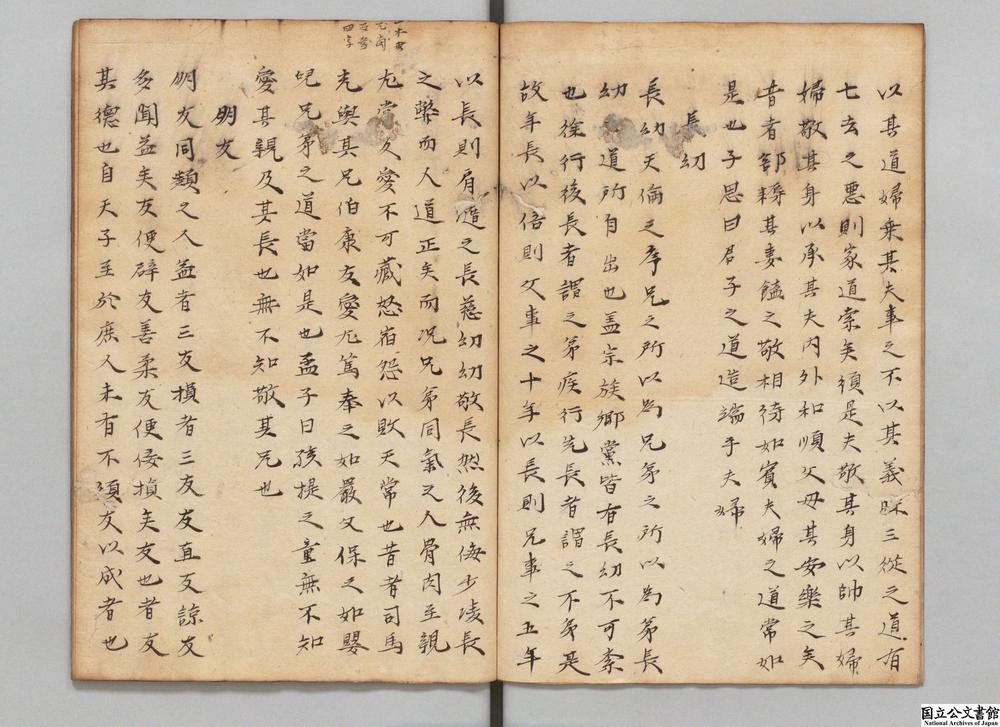 以其道婦乗其夫事之不以其義昧三從之道有
七去之悪則家道索矣須是夫敬其身以帥其婦
婦敬其身以承其夫内外和順父母其安樂之矣
昔者郤耨其妻饁之敬相待如賓夫婦之道當如
是也子思曰君子之道造端乎夫婦
長幼
長幼天倫之序兄之所以為兄弟之所以為弟長
幼道所自出也盖宗族郷黨皆有長幼不可紊
也徐行後長者謂之弟疾行先長者謂之不弟是
故年長以倍則父事之十年以長則兄事之五年
以長則肩隨之長慈幼幼敬長然後無侮少凌長
之弊而人道正矣而况兄弟同氣之人骨肉至親
尤當友愛不可藏怒宿怨以敗天常也昔者司馬
光與其兄伯康友愛尤篤奉之如嚴父保之如嬰
児兄弟之道當如是也孟子曰孩提之童無不知
愛其親及其長也無不知敬其兄也
朋友
朋友同類之人益者三友損者三友友直友諒友
多聞益矣友便辟友善柔友便佞損矣友也者友
其德也自天子至於庶人未有不須友以成者也
国立公文書館
National Archives of Japan